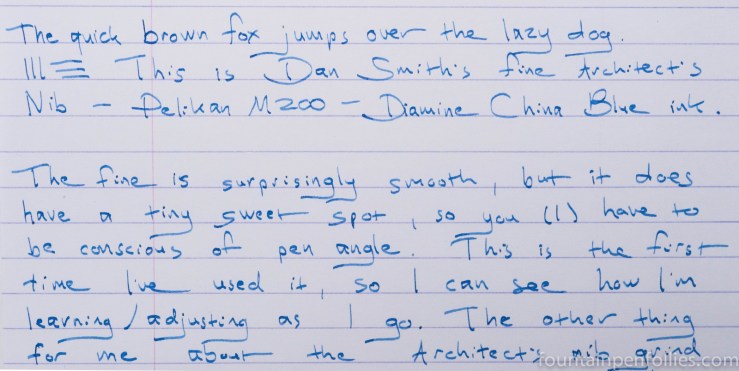 The quick brown fox jumps over the lazy dog.
III☰ This is Dan Smith's fine Architect's
Nib — Pelikan M200 — Diamine China Blue ink.
The fine is surprisingly smooth, but it does
have a tiny sweet spot, so you (I) have to
be conscious of pen angle. This is the first
time I've used it, so I can see how I'm
learning/adjusting as I go. The other thing
for me about the Architect's nib grind
fountainpenfollies.com